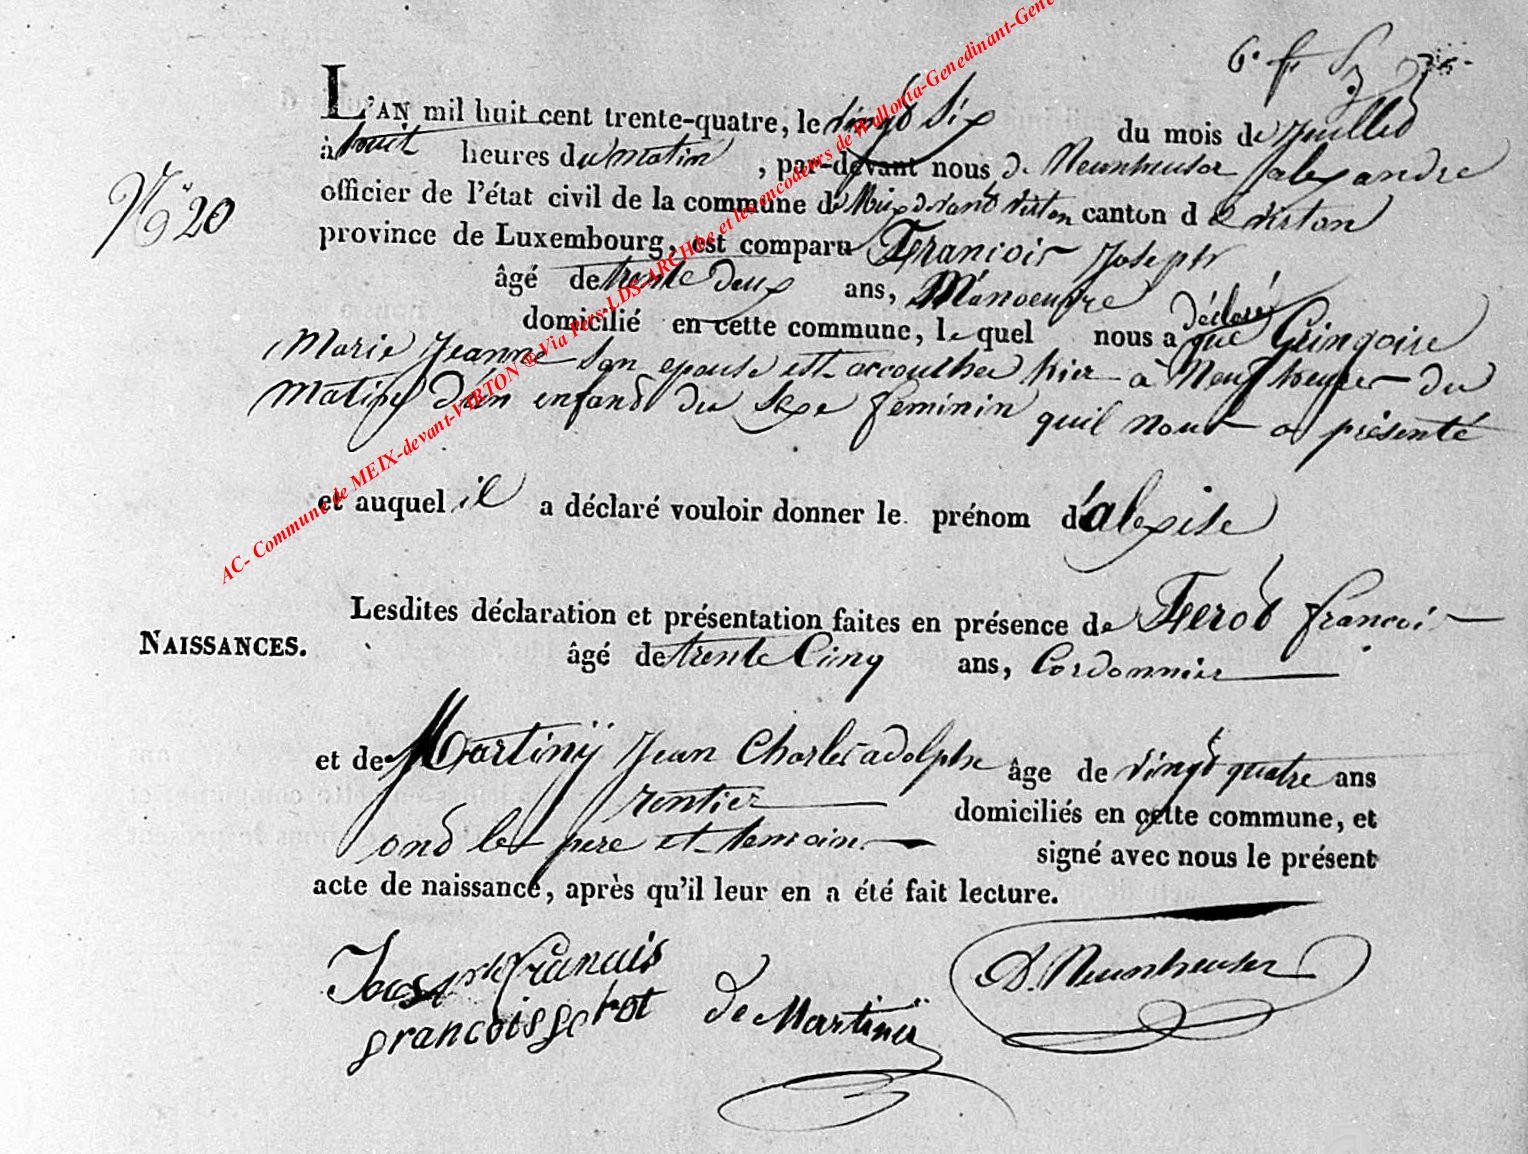 L'AN mil huit cent trente-quatre, le vingt Six du mois de Juillet
à huit heures du matin, par-devant nous de Neunheuser alexandre
officier de l'état civil de la commune de Meix devant virton canton d e virton
province de Luxembourg, est comparu Francois Joseph
âgé de trente deux ans, Manoeuvre
domicilié en cette commune, le quel nous a déclaré que Gringoire
Marie Jeanne son epouse est accouchee hier à Neuf heures du
Matin d'un enfant du sexe feminin quil nous a présenté
et auquel il a déclaré vouloir donner le prénom d'alexise
N° 20
NAISSANCES.
Lesdites déclaration et présentation faites en présence de Ferot francois
âgé de trente Cinq ans, Cordonnier
et de Martinÿ Jean Charles adolphe âge de vingt quatre ans
rentier domiciliés en cette commune, et
ont les pere et temoins signé avec nous le présent
acte de naissance, après qu'il leur en a été fait lecture.
francois
de Martinÿ
D. Neunheuser
AC- Commune de MEIX-devant-VIRTON ® Via Pers-LDS-ARCHbe et les encodeurs de Wallonia-Genedinant-Gene